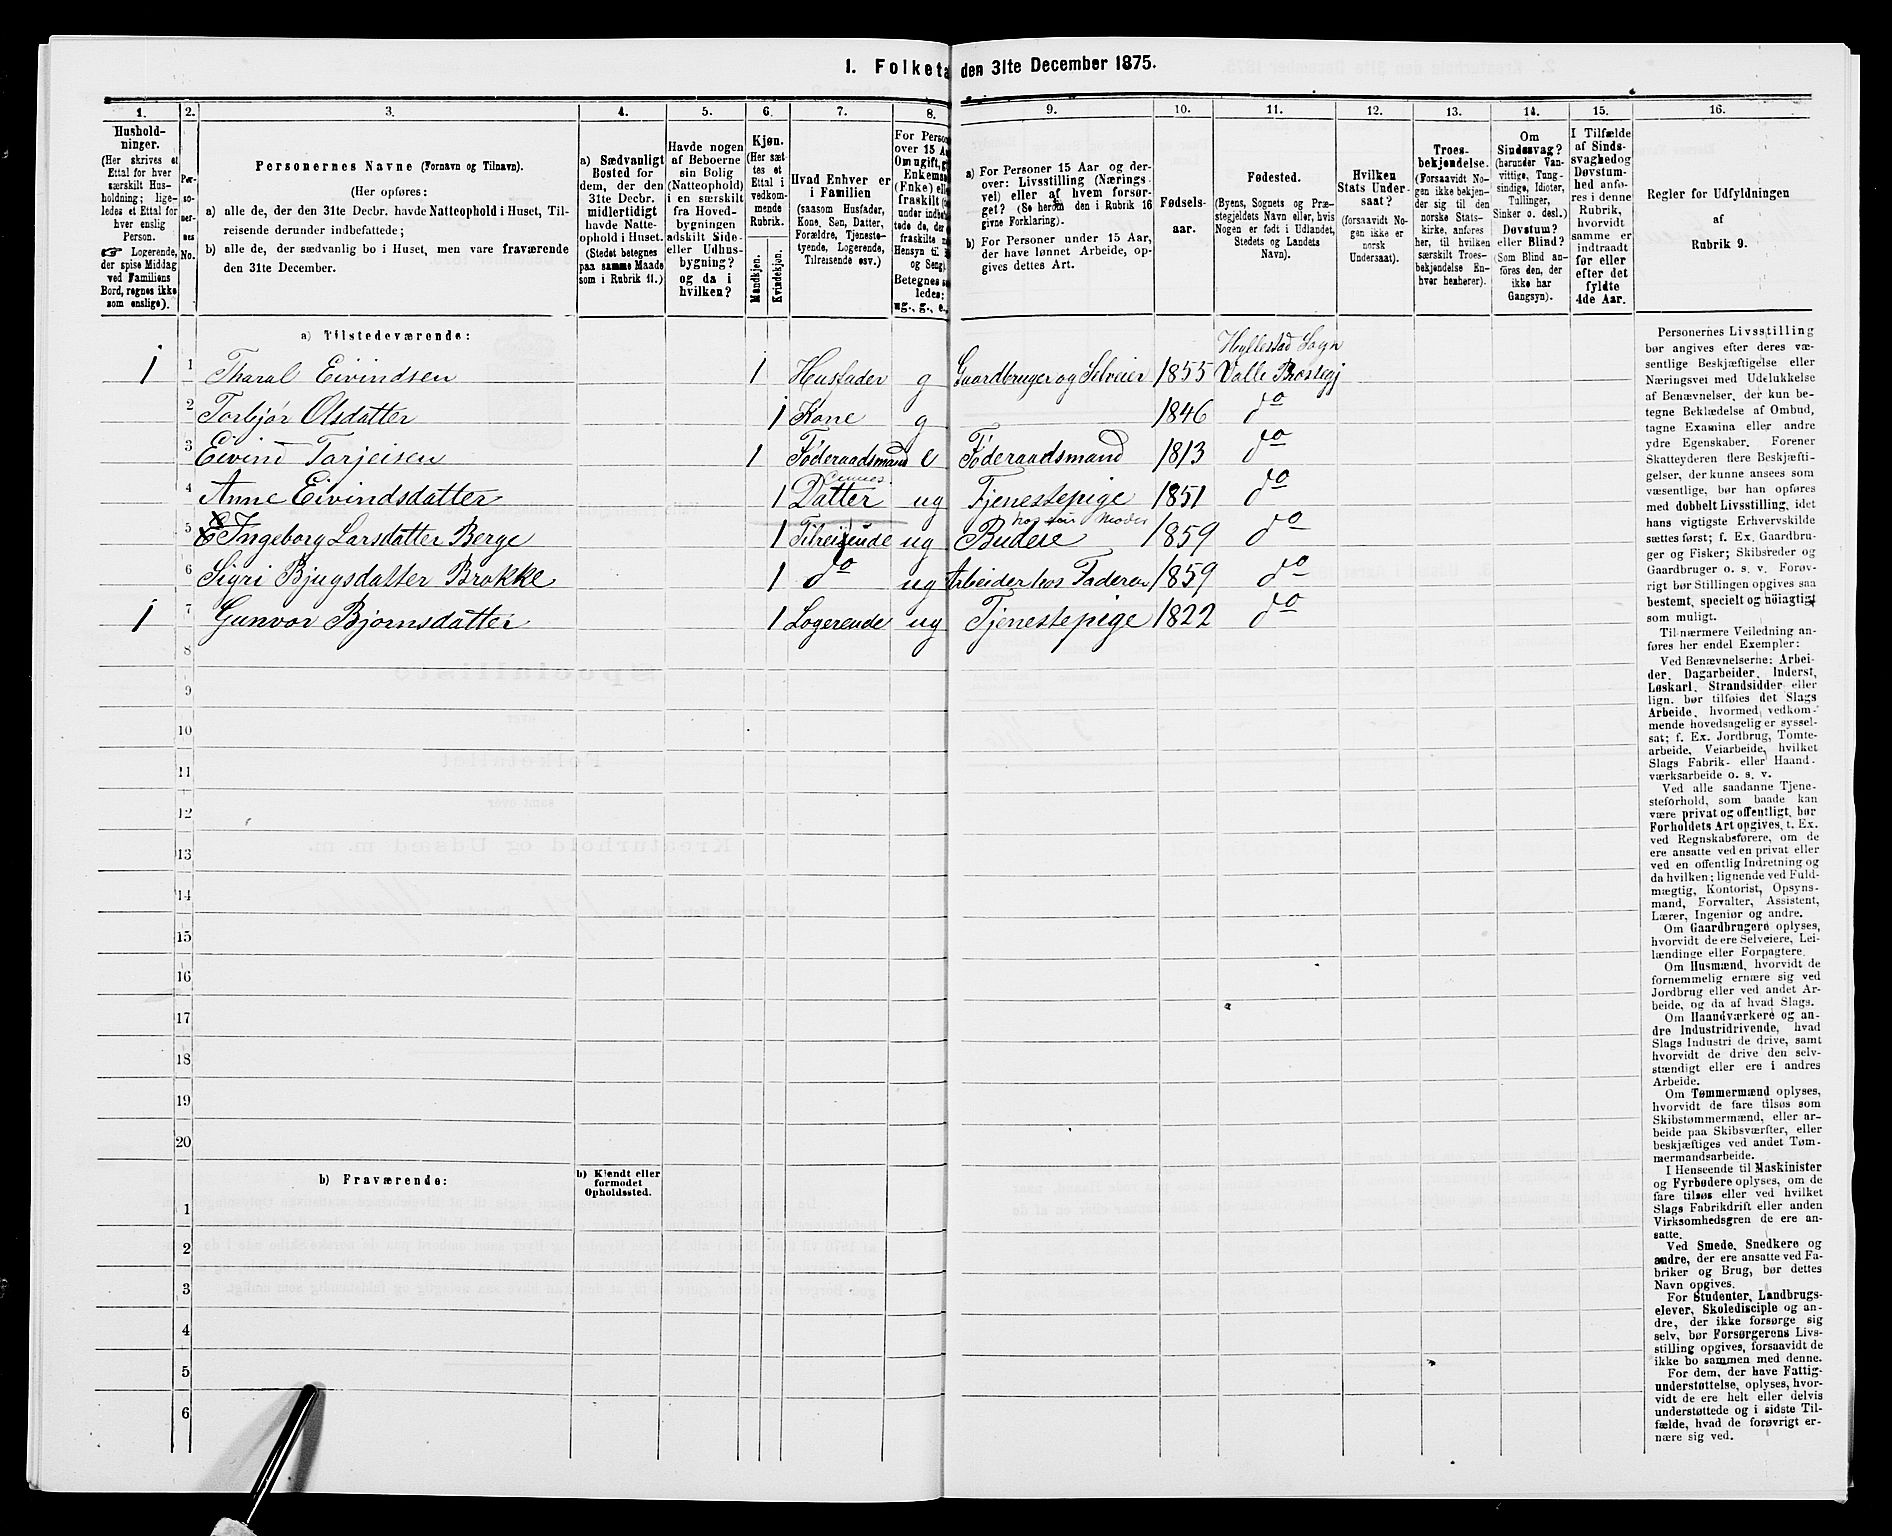 1. Folketa den 31te December 1875.
1. 2. 3. 4. 5. 6. 7. 8. 9. 10. 11. 12. 13. 14. 15. 16.
Hushold-
ninger.
(Her skrives et
Ettal for hver
særskilt Hus-
holdning; lige-
ledes et Ettal for
hver enslig
Person.
☞ Logerende,
der spise Middag
ved Familiens
Bord, regnes ikke
som enslige).
Per-
so-
ner-
nes
No.
Personernes Navne (Fornavn og Tilnavn).
(Her opføres:
a) alle de, der den 31te Decbr. havde Natteophold i Huset, Til-
reisende derunder indbefattede;
b) alle de, der sædvanlig bo i Huset, men vare fraværende
den 31te December.
a) Sædvanligt
Bosted for
dem, der den
31te Decbr.
midlertidigt
havde Natte-
ophold i Huset.
(Stedet betegnes
paa samme Maade
som i Rubrik 11.)
Havde nogen
af Beboerne
sin Bolig
(Natteophold)
i en særskilt
fra Hoved-
bygningen
adskilt Side-
eller Udhus-
bygning?
og da i
hvilken?
Kjøn.
(Her sæt-
tes et
Ettal i
vedkom-
mende
Rubrik.
Mandkjøn.
Kvindekjøn.
Hvad Enhver er
i Familien
(saasom Husfader,
Kone, Søn, Datter,
Forældre, Tjeneste-
tyende, Logerende,
Tilreisende osv.)
For Perso
over 15 A
Om ugift, g
Enkema
(Enke) ell
fraskilt (
under indbe
tede de, d
fraskilte
Hensyn til
og Seng).
Betegnes s
ledes:
ug., g., e.,
a) For Personer 15 Aar og der-
over: Livsstilling (Nærings-
vei) eller af hvem forsør-
get? (Se herom den i Rubrik 16
givne Forklaring).
b) For Personer under 15 Aar,
der have lønnet Arbeide, op-
gives dettes Art.
Fødsels-
aar.
Fødested.
(Byens, Sognets og Præ-
stegjeldets Navn eller, hvis
Nogen er født i Udlandet,
Stedets og Landets
Navn).
Hvilken
Stats Under-
saat?
(forsaavidt No-
gen ikke er
norsk
Undersaat).
Troes-
bekjendelse.
(Forsaavidt No-
gen ikke bekjen-
der sig til den
norske Stats-
kirke, anføres
her, til hvilken
særskilt Troes-
bekjendelse En-
hver henhører).
Om
Sindssvag?
(herunder Van-
vittige, Tung-
sindige, Idioter,
Tullinger,
Sinker o. desl.)
Døvstum?
eller Blind?
(Som Blind an-
føres den, der
ikke har
Gangsyn).
I Tilfælde
af Sinds-
svaghed og
Døvstum-
hed anfø-
res i denne
Rubrik,
hvorvidt
samme er
indtraadt
før eller
efter det
fyldte
4de Aar.
Regler for Udfyldningen
af
Rubrik 9.
a) Tilstedeværende:
Hyllestad Sogn
1 1 Tharal Eivindsen 1 Husfader g Gaardbruger og Selveier 1855 Valle Prestegj
2 Torbjør Olsdatter 1 Kone g 1846 do
3 Eivind Tarjeisen 1 Føderaadsmand e Føderaadsmand 1813 do
4 Anne Eivindsdatter 1 Datter ug Tjenestepige 1851 do
hos sin Moder
5 Ingeborg Larsdatter Berge 1 Tilreisende ug Budeie 1859 do
6 Sigri Bjugsdatter Brokke 1 do ug Arbeider hos Faderen 1859 do
1 7 Gunvor Bjørnsdatter 1 Logerende ug Tjenestepige 1822 do
8
9
10
11
12
13
14
15
16
17
18
19
20
b) Fraværende: b) Kjendt eller
formodet
Opholdssted.
1
2
3
4
5
6
Personernes Livsstilling
bør angives efter deres væ-
sentlige Beskjæftigelse eller
Næringsvei med Udelukkelse
af Benævnelser, der kun be-
tegne Beklædelse af Ombud,
tagne Examina eller andre
ydre Egenskaber. Forener
Skatteyderen flere Beskjæfti-
gelser, der kunne ansees som
væsentlige, bør han opføres
med dobbelt Livsstilling, idet
hans vigtigste Erhvervskilde
sættes først; f. Ex. Gaardbru-
ger og Fisker; Skibsreder og
Gaardbruger o. s. v. Forøv-
rigt bør Stillingen opgives saa
bestemt, specielt og nøiagtigt
som muligt.
Til nærmere Veiledning an-
føres her endel Exempler:
Ved Benævnelserne: Arbei-
der, Dagarbeider, Inderst,
Løskarl, Strandsidder eller
lign. bør tilføies det Slags
Arbeide, hvormed vedkom-
mende hovedsagelig er syssel-
sat; f. Ex. Jordbrug, Tomte-
arbeide, Veiarbeide, hvilket
Slags Fabrik- eller Haand-
værksarbeide o. s. v.
Ved alle saadanne Tjene-
steforhold, som baade kan
være privat og offentligt, bør
Forholdets Art opgives, t. Ex.
ved Regnskabsførere, om de
ere ansatte ved en privat eller
ved en offentlig Indretning og
da hvilken; lignende ved Fuld-
mægtig, Kontorist, Opsyns-
mand, Forvalter, Assistent,
Lærer, Ingeniør og andre.
Om Gaardbrugere oplyses,
hvorvidt de ere Selveiere, Lei-
lændinge eller Forpagtere.
Om Husmænd, hvorvidt de
fornemmelig ernære sig ved
Jordbrug eller ved andet Ar-
beide, og da af hvad Slags.
Om Haandværkere og an-
dre Industridrivende, hvad
Slags Industri de drive, samt
hvorvidt de drive den selv-
stændigt eller ere i andres
Arbeide.
Om Tømmermænd oplyses,
hvorvidt de fare tilsøs som
Skibstømmermænd, eller ar-
beide paa Skibsværfter, eller
beskjæftiges ved andet Tøm-
mermandsarbeide.
I Henseende til Maskinister
og Fyrbødere oplyses, om de
fare tilsøs eller ved hvilket
Slags Fabrikdrift eller anden
Virksomhedsgren de ere an-
satte.
Ved Smede, Snedkere og
andre, der ere ansatte ved Fa-
briker og Brug, bør dettes
Navn opgives.
For Studenter, Landbrugs-
elever, Skoledisciple og an-
dre, der ikke forsørge sig
selv, bør Forsørgerens Livs-
stilling opgives, forsaavidt de
ikke bo sammen med denne.
For dem, der have Fattig-
understøttelse, oplyses, hvor-
vidt de ere helt eller delvis
understøttede og i sidste Til-
fælde, hvad de forøvrigt er-
nære sig ved.